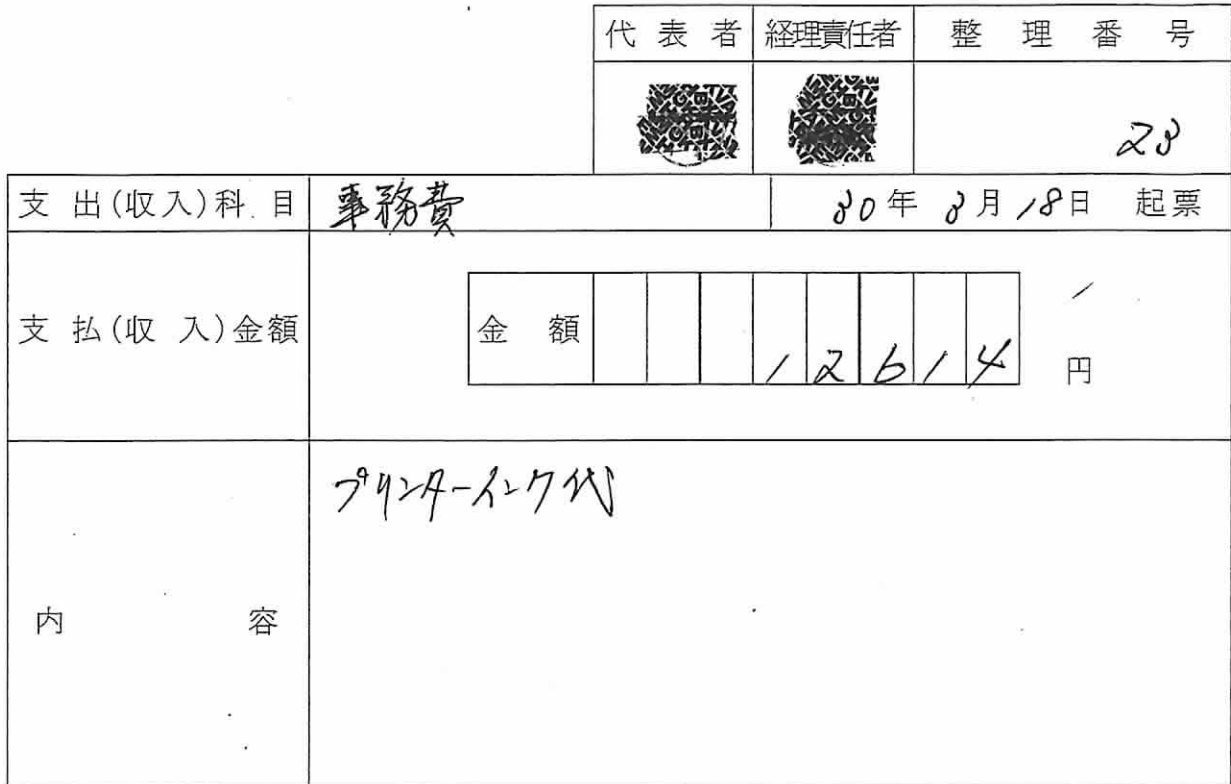 代表者 経理責任者 整理番号
23
支出(収入)科目 事務費 30年 3月 18日 起票
支払(収入)金額 金額 12614 円
プリンターインク代
内容